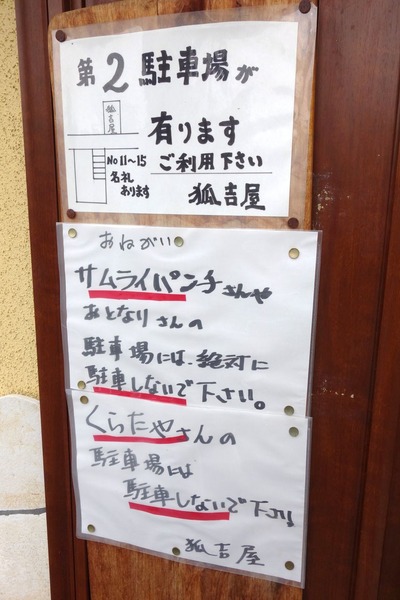 第2駐車場が
狐吉屋
有ります
No11~15
名札
あります
ご利用下さい
狐吉屋
おねがい
サムライパンチさんや
おとなりさんの
駐車場には、絶対に
駐車しないで下さい。
くらたやさんの
駐車場には
駐車しないで下さい
狐吉屋